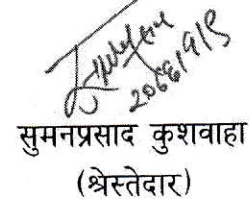 २०७६/१/९
सुमनप्रसाद कुशवाहा
(श्रेस्तेदार)